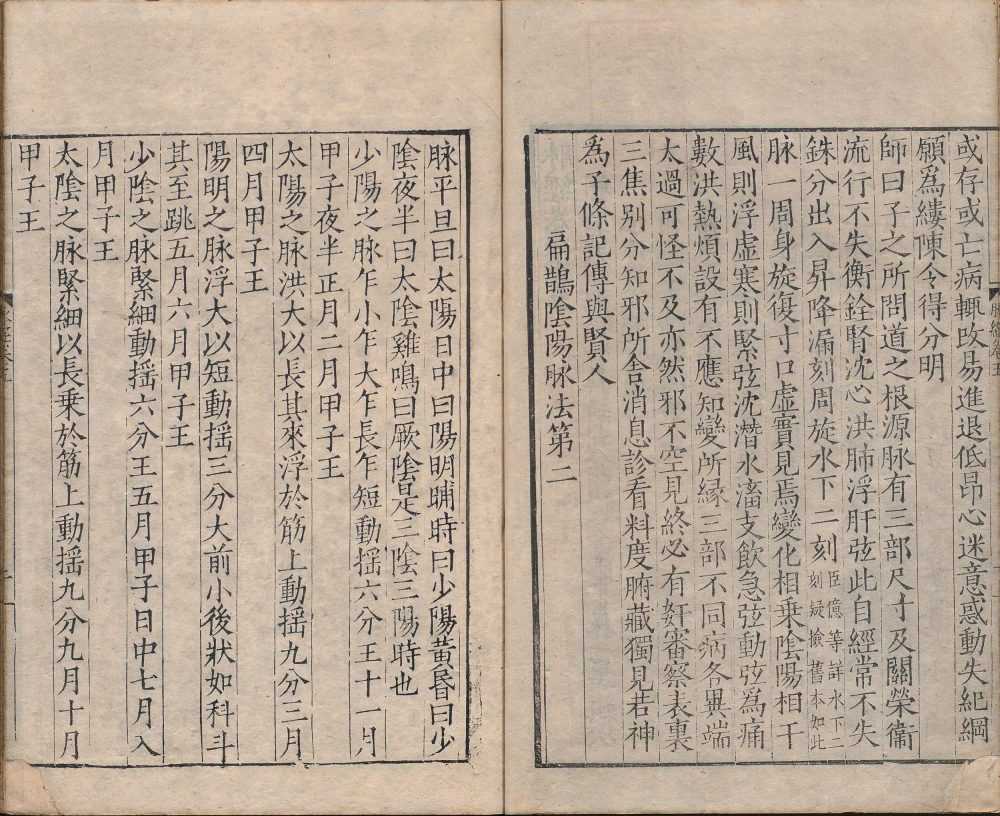 或存或亡病輒改易進退低昂心迷意惑動失紀綱
願爲縷陳令得分明
師曰子之所問道之根源脉有三部尺寸及關榮衞
流行不失衡銓腎沈心洪肺浮肝弦此自經常不失
銖分出入昇降漏刻周旋水下二刻臣億等詳水下二刻疑撿舊本如此
脉一周身旋復寸口虛實見焉變化相乗陰陽相干
風則浮虛寒則緊弦沈潜水滀支飲急弦動弦爲痛
數洪熱煩設有不應知變所緣三部不同病各異端
太過可怪不及亦然邪不空見終必有奸審察表裏
三焦別分知邪所舎消息診看料度腑藏獨見若神
爲子條記傳與賢人
扁鵲陰陽脉法第二
脉平旦曰太陽日中曰陽明晡時曰少陽黃昏曰少
陰夜半曰太陰雞鳴曰厥陰是三陰三陽時也
少陽之脉乍小乍大乍長乍短動揺六分王十一月
甲子夜半正月二月甲子王
太陽之脉洪大以長其來浮於筋上動揺九分三月
四月甲子王
陽明之脉浮大以短動揺三分大前小後狀如科斗
其至跳五月六月甲子王
少陰之脉緊細動揺六分王五月甲子日中七月八
月甲子王
太陰之脉緊細以長乗於筋上動揺九分九月十月
甲子王